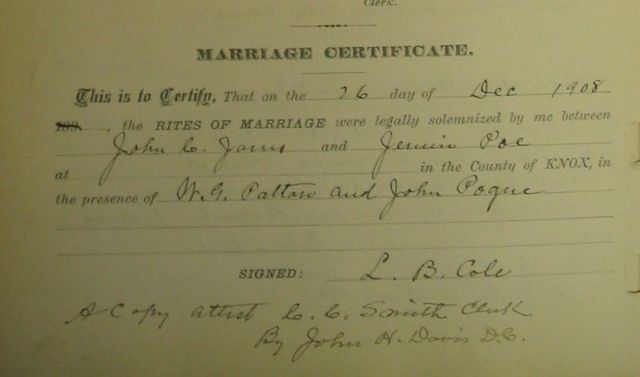 Clerk.
MARRIAGE CERTIFICATE.
This is to Certify, That on the 26 day of Dec 1908
189 , the RITES OF MARRIAGE were legally solemnized by me between
John C. and Poe
at in the County of KNOX, in
the presence of W. G. Patton and John Pogue
SIGNED: L. B. Cole
A Copy attest C. C. Smith Clerk
By John H. Davis D.C.